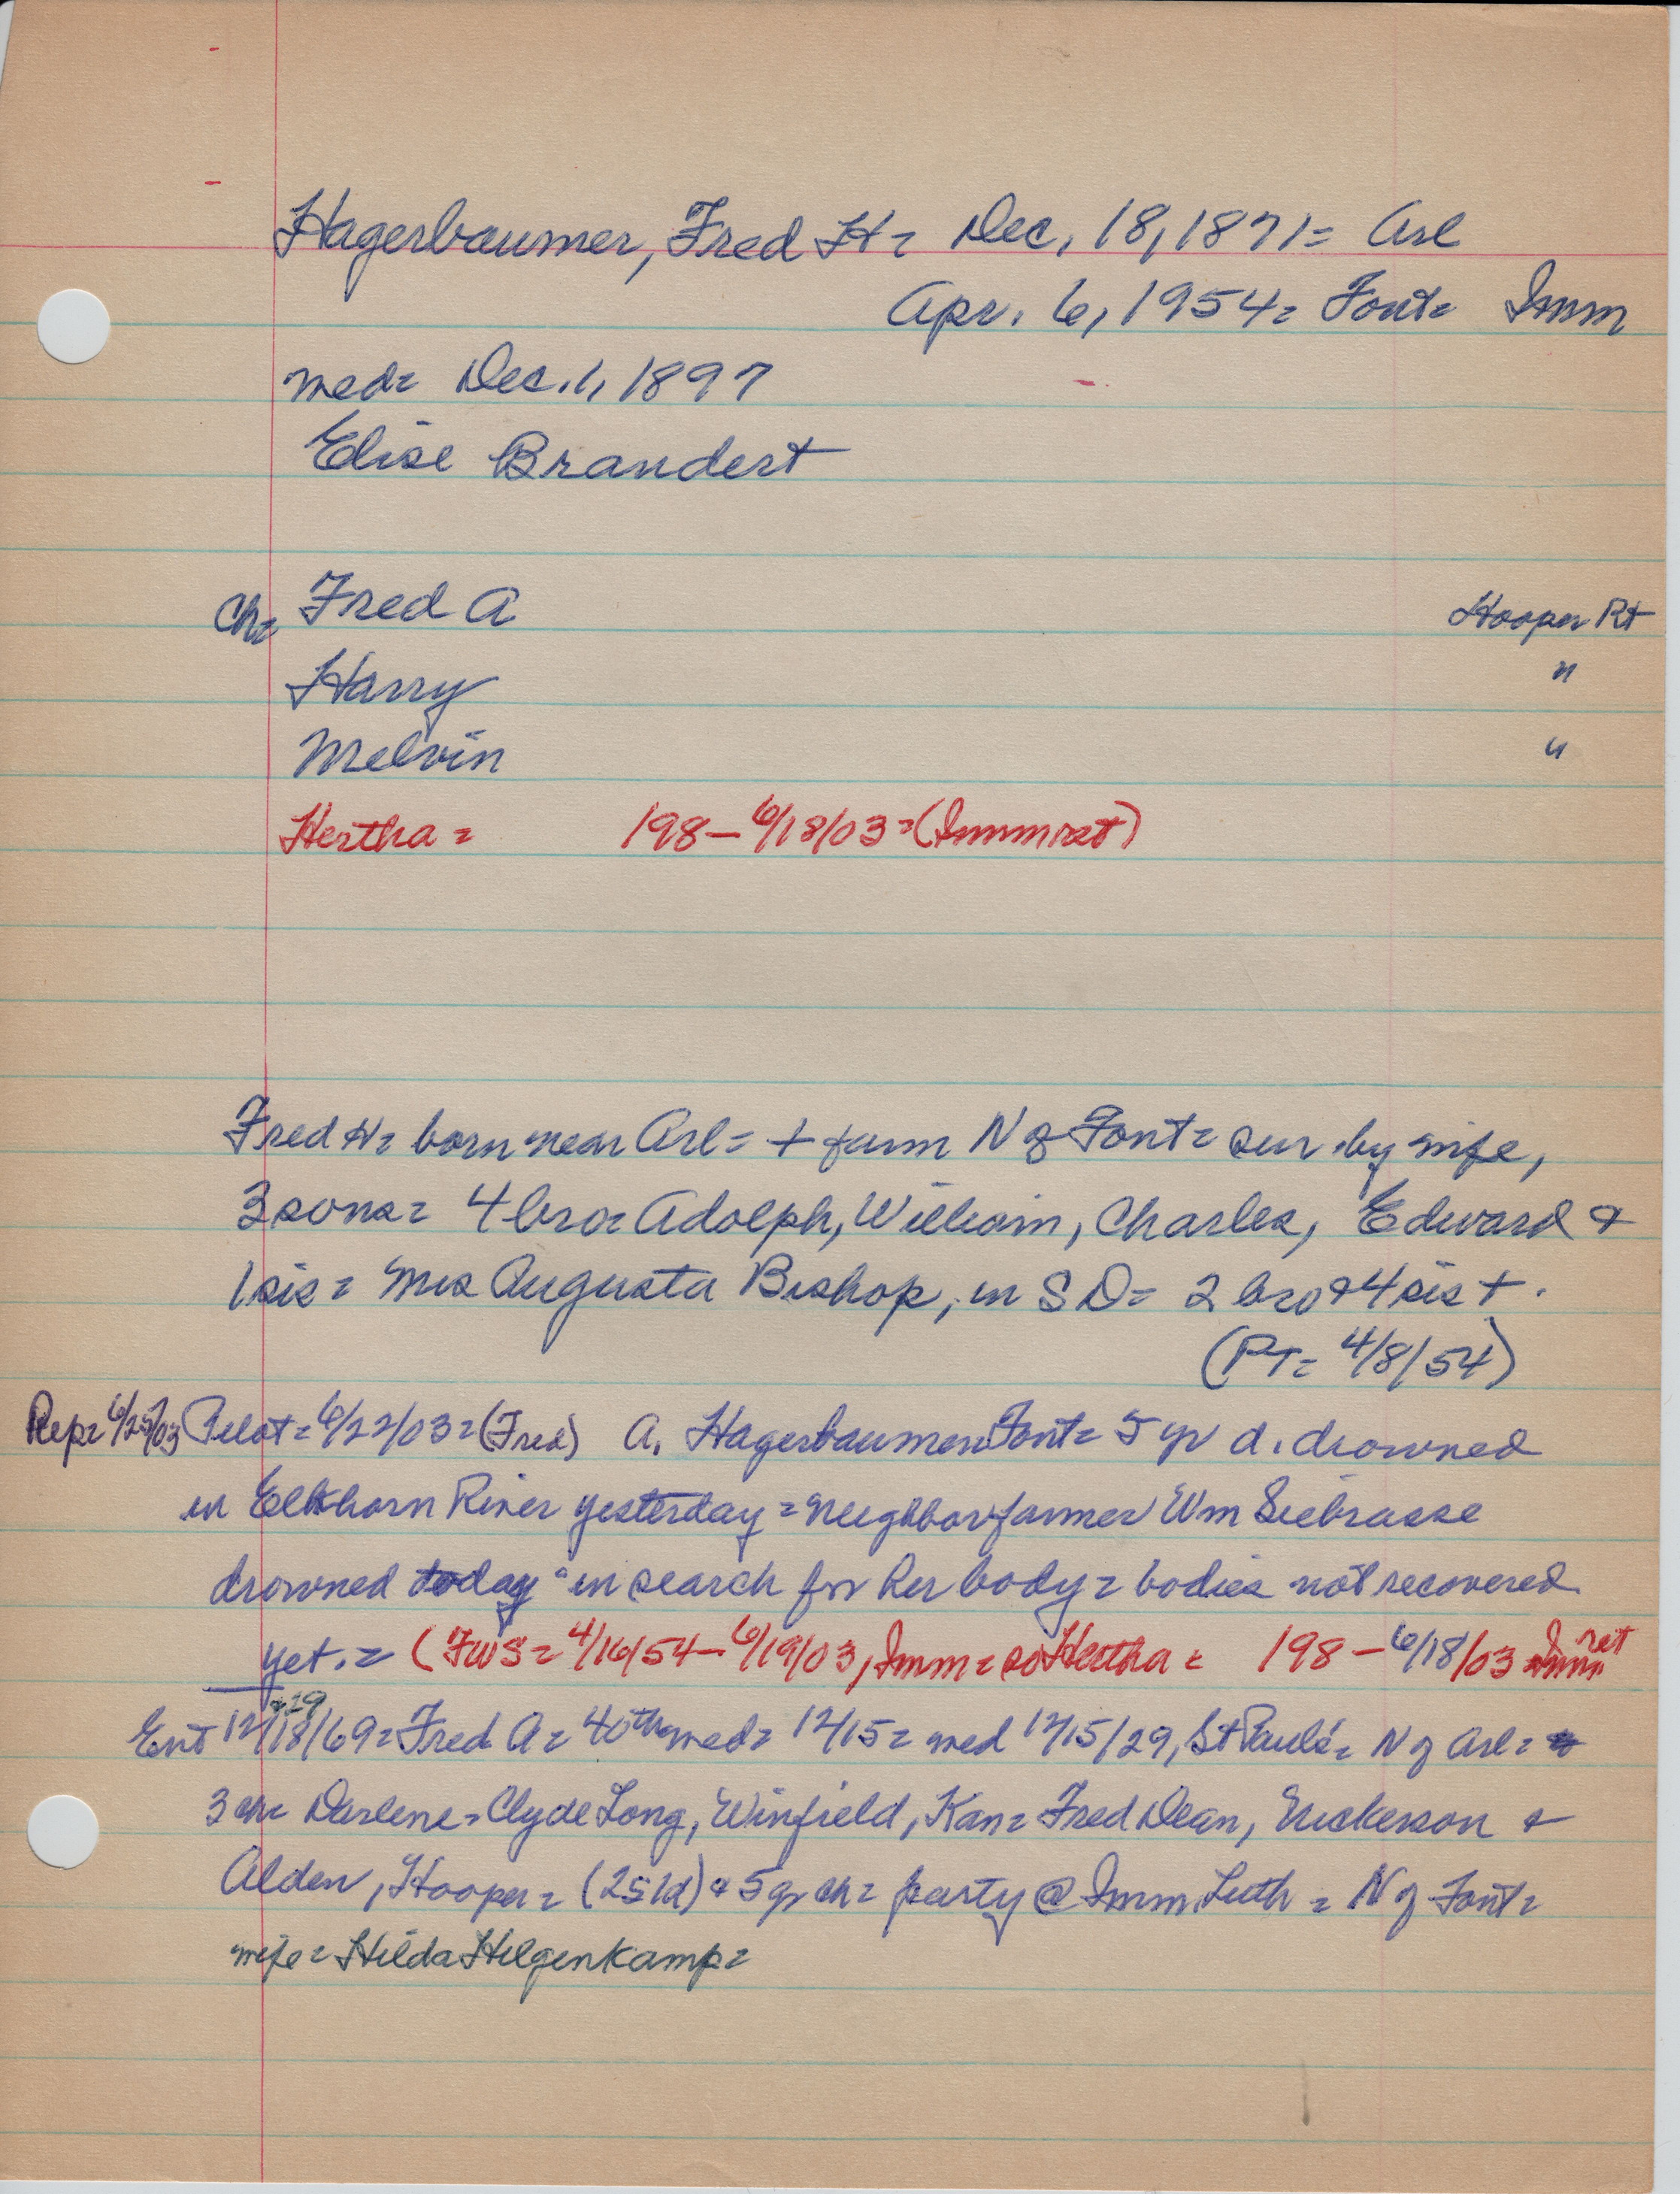 Hagerbaumer, Fred H= Dec. 18, 1871= Arl
Apr. 6, 1954= Font= Imm
med= Dec. 1, 1897
Elise Brandert
Ch= Fred A Hooper Rt
Harry "
Melvin "
Hertha = 198- 6/18/03 = (Imm rst)
Fred H= born near Arl= + farm N of Font= sur by wife,
3 sons= 4 bro= Adolph, William, Charles, Edward &
1 sis= Mrs Augusta Bishop, in SD= 2 bro & 4 sis +.
(PT= 4/8/54)
Rep= 6/25/03 Pilot= 6/22/03= (Fred) A. Hagerbaumer Font= 5 yr d. drowned
in Elkhorn River yesterday = neighbor farmer Wm Siebrasse
drowned today "in search for her body= bodies not recovered
yet. = (FWS= 4/16/54- 6/19/03, Imm= so Hertha = 198- 6/18/03 Imm rst
Ent 12/18/69= Fred A= 40th med= 12/15= med 12/15/29, St Paul's= N of Arl=
+29
3 ch= Darlene= Clyde Long, Winfield, Kan= Fred Dean, Nickerson &
Alden, Hooper= (2s 1d) & 5 gr ch= party @ Imm Luth = N of Font=
wife= Hilda Hilgenkamp=